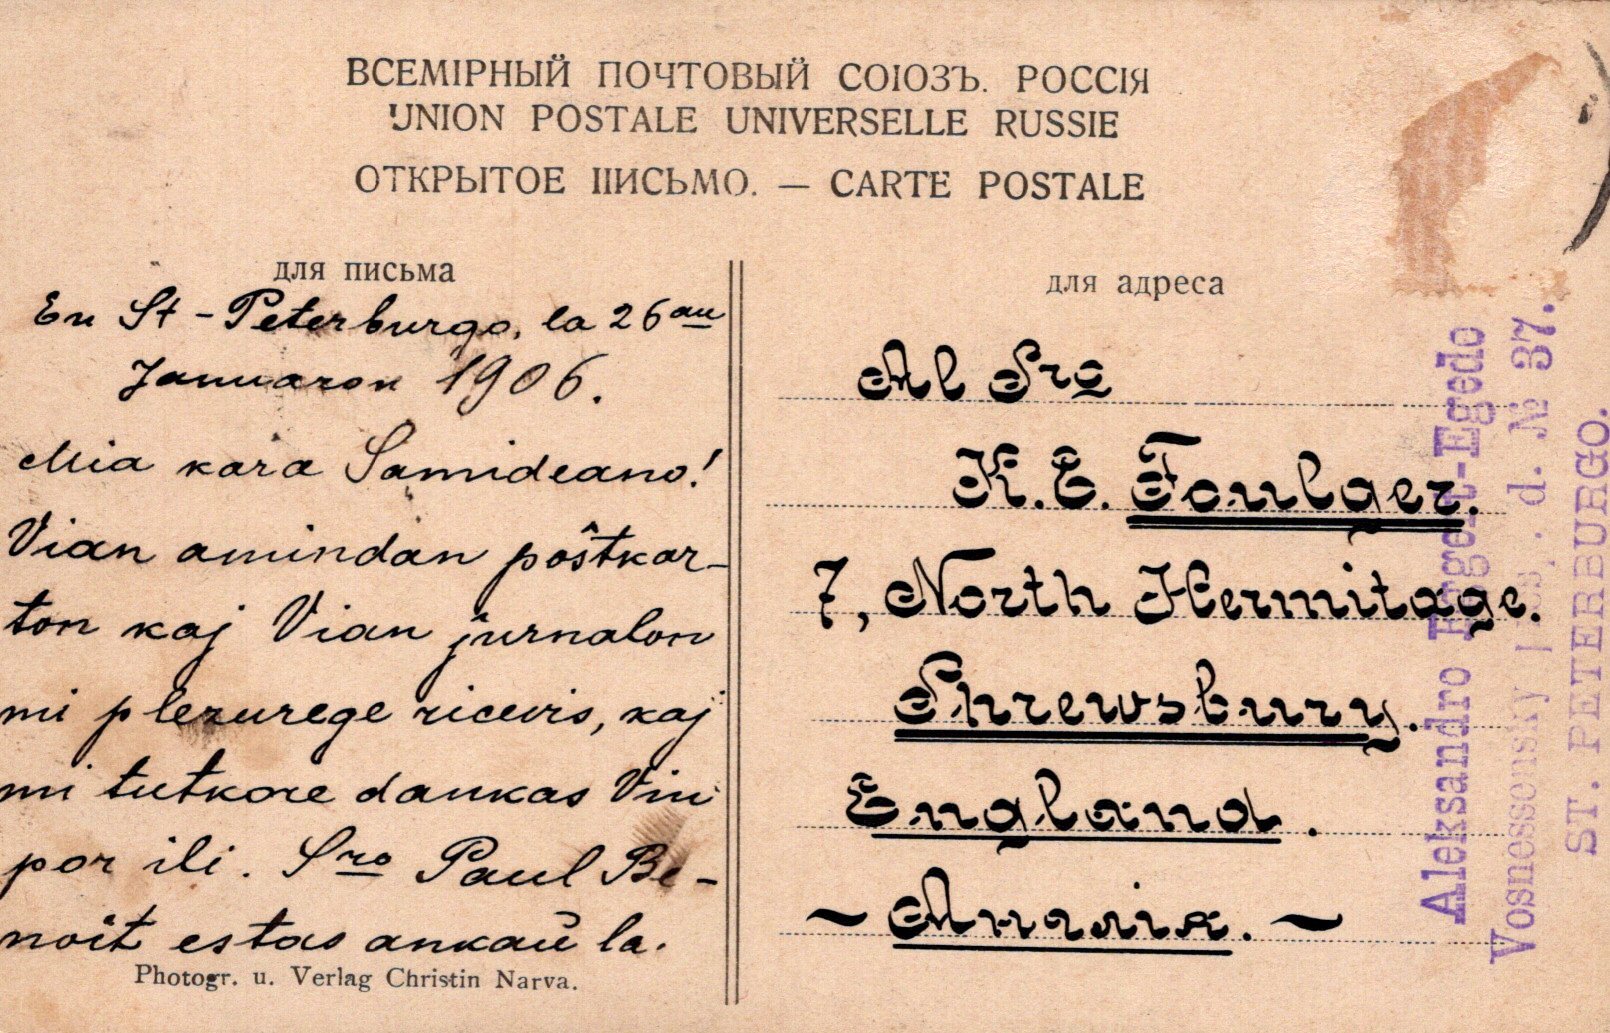 ВСЕМІРНЫЙ ПОЧТОВЫЙ СОЮЗЪ. РОССІЯ
UNION POSTALE UNIVERSELLE RUSSIE
ОТКРЫТОЕ ПИСЬМО. — CARTE POSTALE
для письма
En St-Peterburgo, la 26an
Januaron 1906.
Mia kara Samideano!
Vian amindan poŝtkar-
ton kaj Vian ĵurnalon
mi plezurege ricevis, kaj
mi tutkore dankas Vin
por ili. Sro Paul Be-
noit estas ankaŭ la.
Photogr. u. Verlag Christin Narva.
для адреса
Al Sro
K. E. Foulger.
7, North Hermitage.
Shrewsbury.
England.
— Англія. —
Aleksandro Egert-Egedo
Vosnessensky d. № 37.
ST. PETERBURGO.